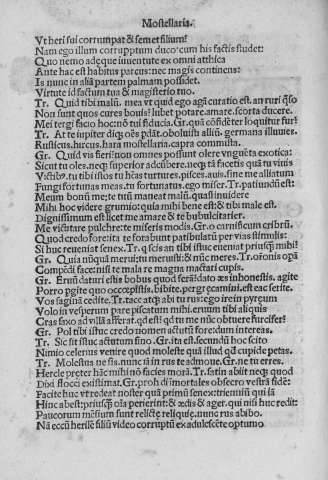 Mostellaria.
Ut heri sui corrumpat & semet filium?
Nam ego illum corruptum duco cum his factis studet:
Quo nemo adęque iuuentute ex omni atthica
Ante hac est habitus parcus: nec magis continens:
Is nunc in aliā partem palmam possidet.
Virtute id factum tua & magisterio tuo.
Tr. Quid tibi malū mea ut quid ego agā curatio est. an ruri q̄so
Non sunt quos cures boues? lubet potare. amare. scorta ducere.
Mei tergi facio hoc: nō tui fiducia. Gr. quā cōfidēter loquitur fur?
Tr. At te iupiter diq; oēs pdāt. oboluisti alliū. germana illuuies.
Rusticus. hircus. hara mostellaria. capra commista.
Gr. Quid vis fieri? non omnes possunt olere vngueta exotica:
Si cut tu oles. neq; superior adcūbere. neq; tā facetis quā tu viuis
Victib9. tu tibi istos tu hēas turtures. pisces. auis. sine me alliatum
Fungi fortunas meas. tu fortunatus. ego miser. Tr. patiundū est:
Meum bonū me; te tuū maneat malū. quasi inuidere
Mihi hoc videre grumio: quia mihi bene est: & tibi male est.
Dignissimum est licet me amare & te bubulcitarier.
Me victitare pulchre: te miseris modis. Gr. o carnificum cribrū.
Quod credo fore: ita te forabunt patibulatū per vias stimulis:
Si huc reueniat senex. Tr. q scis an tibi istuc eueniat priusq; mihi?
Gr. Quia nūquā merui; tu meruisti: & nūc meres. Tr. orōnis opā
Compēdi face: nisi te mala re magna mactari cupis.
Gr. Eruū daturi estis bobus quod ferā? dato ęs inhonestis. agite
Porro pgite quo occœpistis. bibite. pergręcamini. est eac serite.
Vos saginā cedite. Tr. tace atq; abi tu rus: ego ire in pyręum
Volo in vesperum pare piscatum mihi. eruum tibi aliquis
Cras faxo ad villā afferat. qd est? qd tu me nūc obtuere furcifer?
Gr. Pol tibi istuc credo nomen actutū fore: dum intereas.
Tr. Sic sit istuc actutum sino. Gr. ita est. secundū hoc scito
Nimio celerius venire quod moleste quā illud qd cupide petas.
Tr. Molestus ne sis. nunc iā in rus te admoue. Gr. ne tu erres.
Hercle preter hāc mihi nō facies morā. Tr. satin abiit neq; quod
Dixi flocci existimat. Gr. proh dii īmortales obsecro vestrā fidē:
Facite huc vt redeat noster quā primū senex: triennium qui iā
Hinc abest: priusq; oīa perierint: & ædis & ager. qui nisi huc redit:
Paucorum mēsium sunt relictę reliquię. nunc rus abibo.
Nā eccū herilē filiū video corruptū ex adulescēte optumo